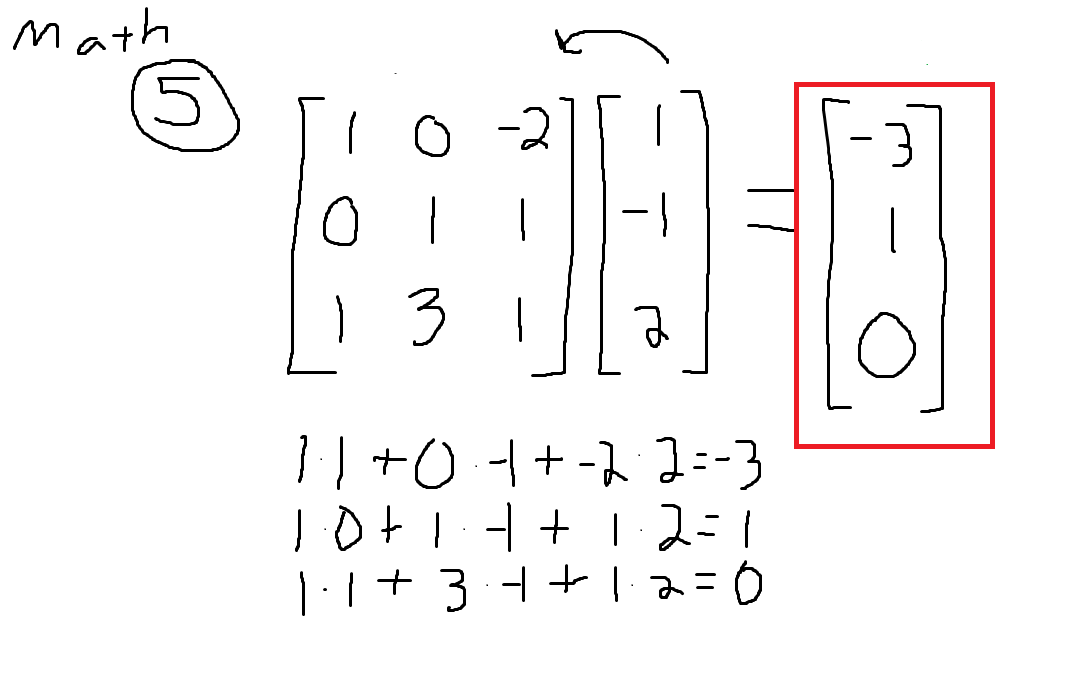 Math
5
1 0 -2 1 -3
0 1 1 -1 = 1
1 3 1 2 0
1·1 + 0·-1 + -2·2=-3
1·0 + 1·-1 + 1·2=1
1·1 + 3·-1 + 1·2=0